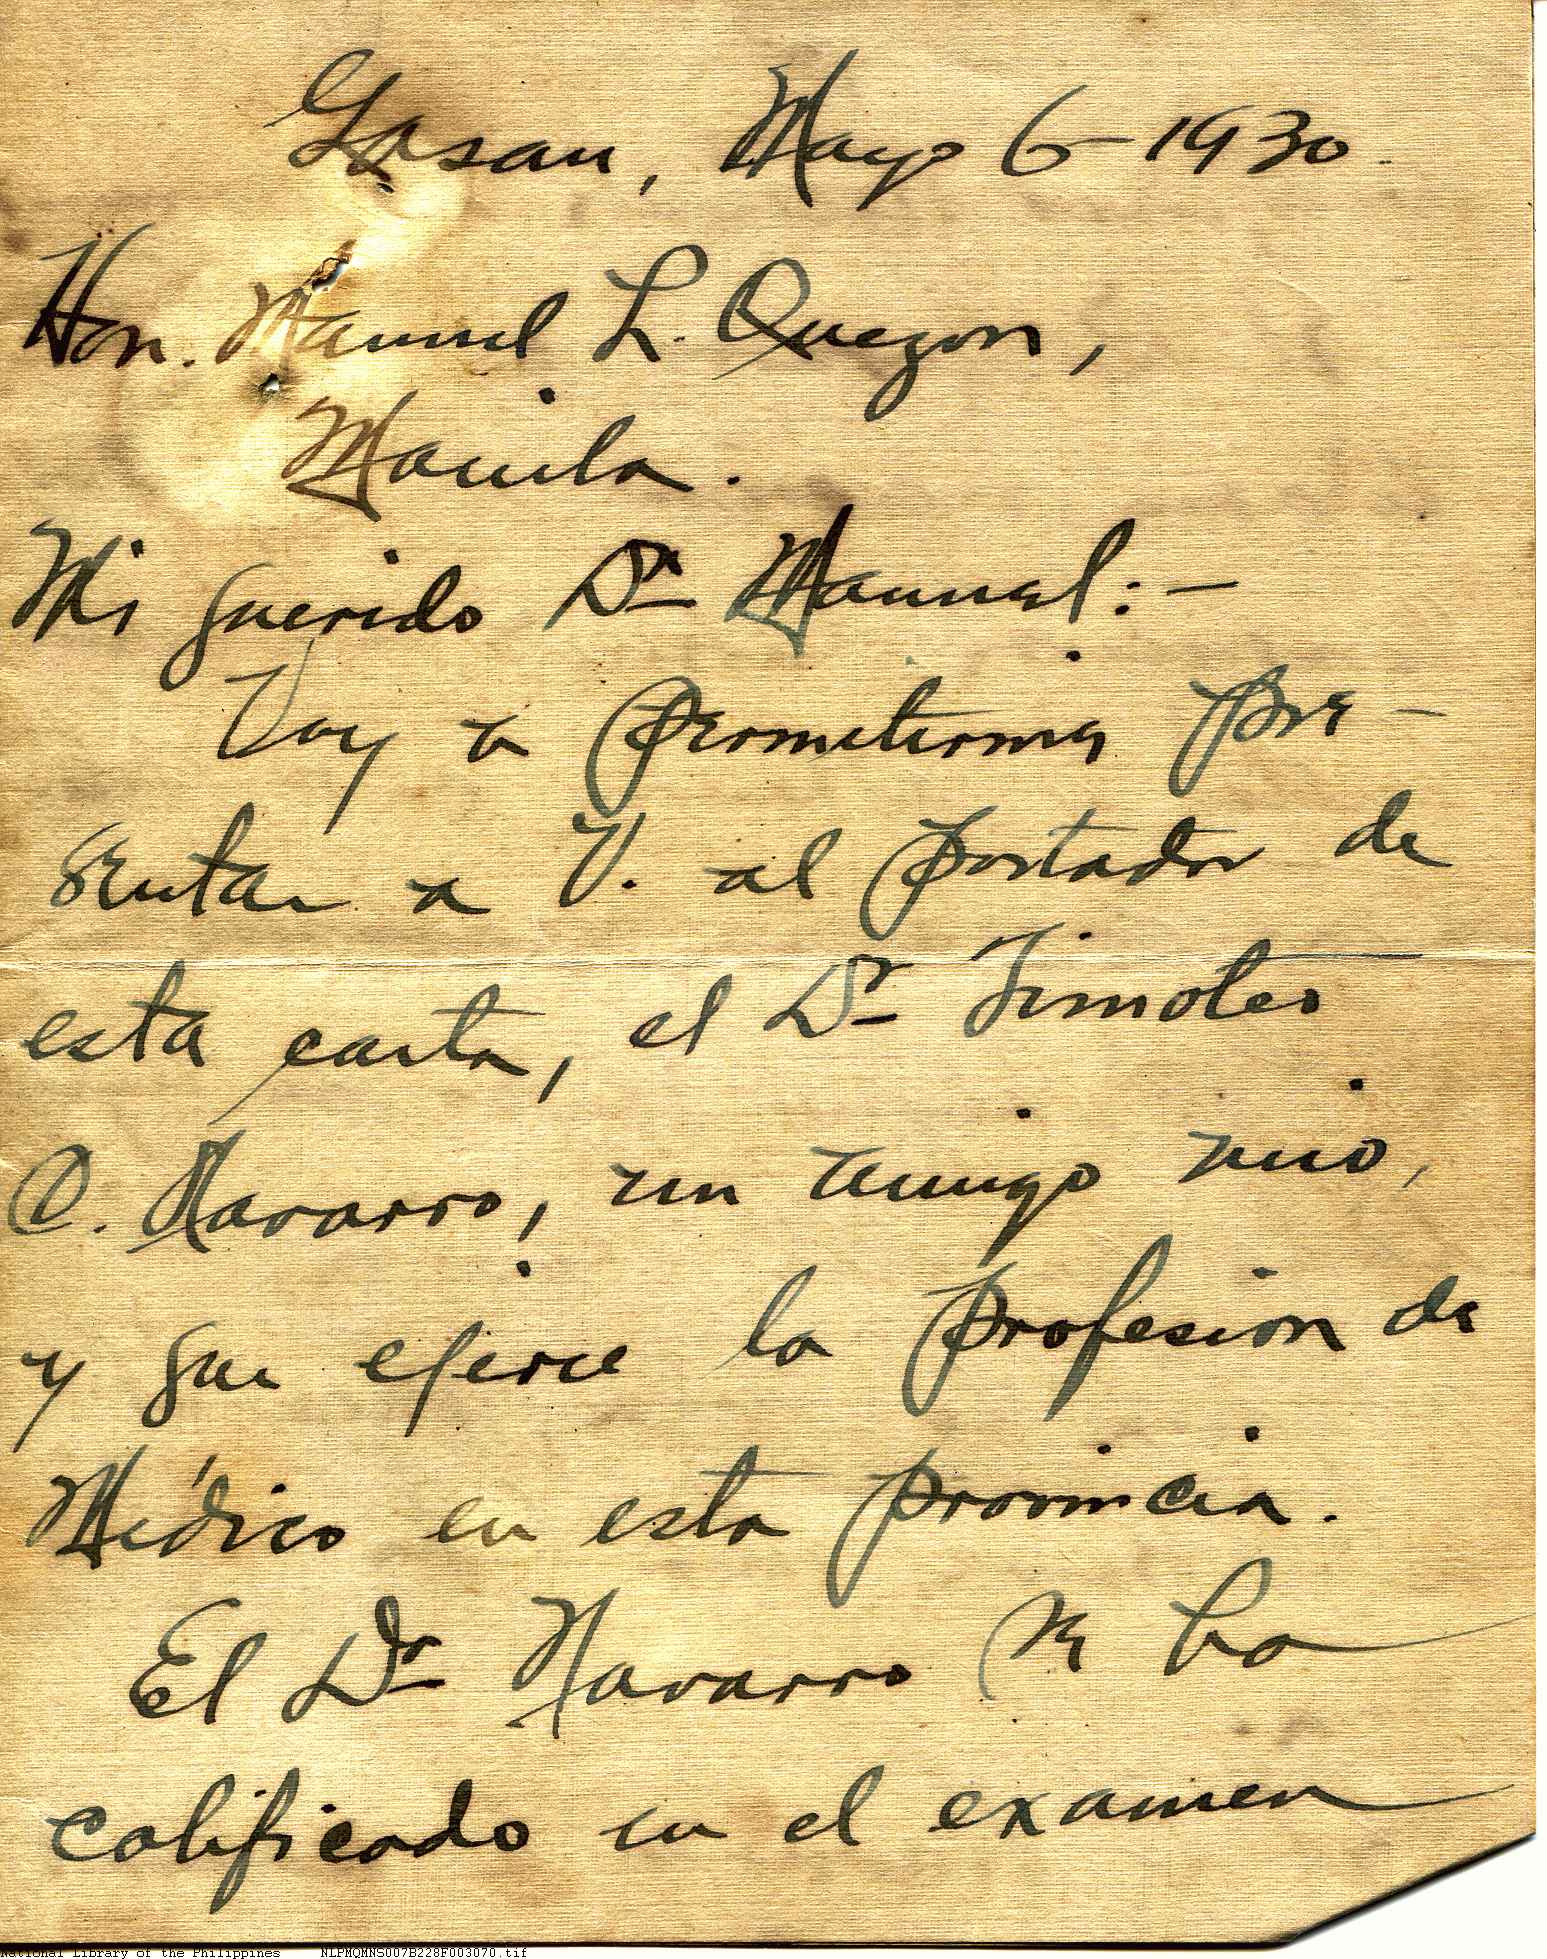 Gasan, Mayo 6-1930.
Hon. Manuel L. Quezon,
Manila.
Mi querido Dn Manuel:-
Voy a permitirme pre-
sentar a V. al portador de
esta carta, el Dr Timoteo
C. Navarro, un amigo mio,
y que ejerce la profesion de
Médico en esta provincia.
El Dr Navarro se ha
calificado en el examen
National Library of the Philippines NLPMQMNS007B228F003070.tif